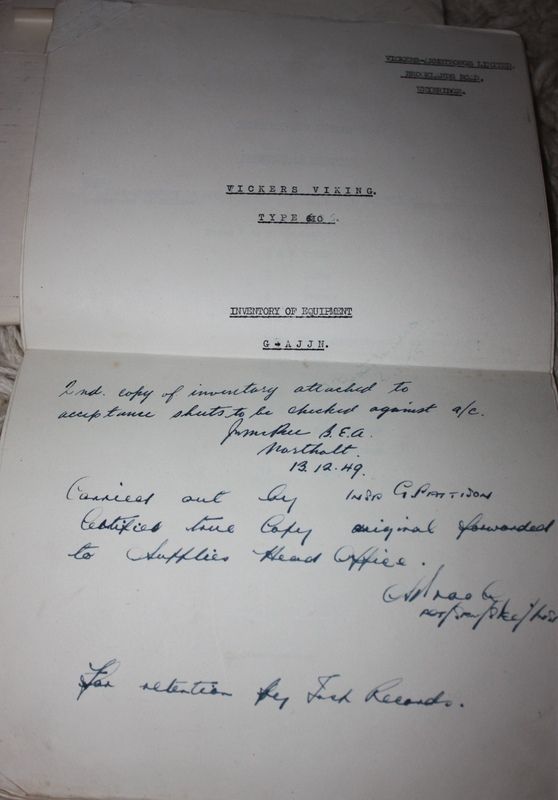 VICKERS-ARMSTRONGS LIMITED.
BROOKLANDS ROAD,
WEYBRIDGE.
VICKERS VIKING.
TYPE
INVENTORY OF EQUIPMENT
G-AJJN.
2nd. copy of inventory attached to
acceptance sheets to be checked against a/c.
B.E.A.
Northolt.
13.12.49.
Carried out by INSP G. PATTISON
Certified true Copy original forwarded
to Supplies Head Office.
For retention by Records.